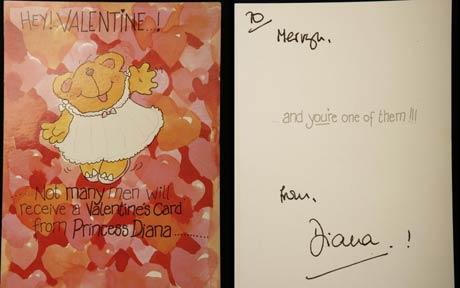 HEY! VALENTINE...!
.....Not many men will
receive a Valentine's Card
from Princess Diana..........
TO
Mervyn,
...and you're one of them!!!
from,
Diana.!